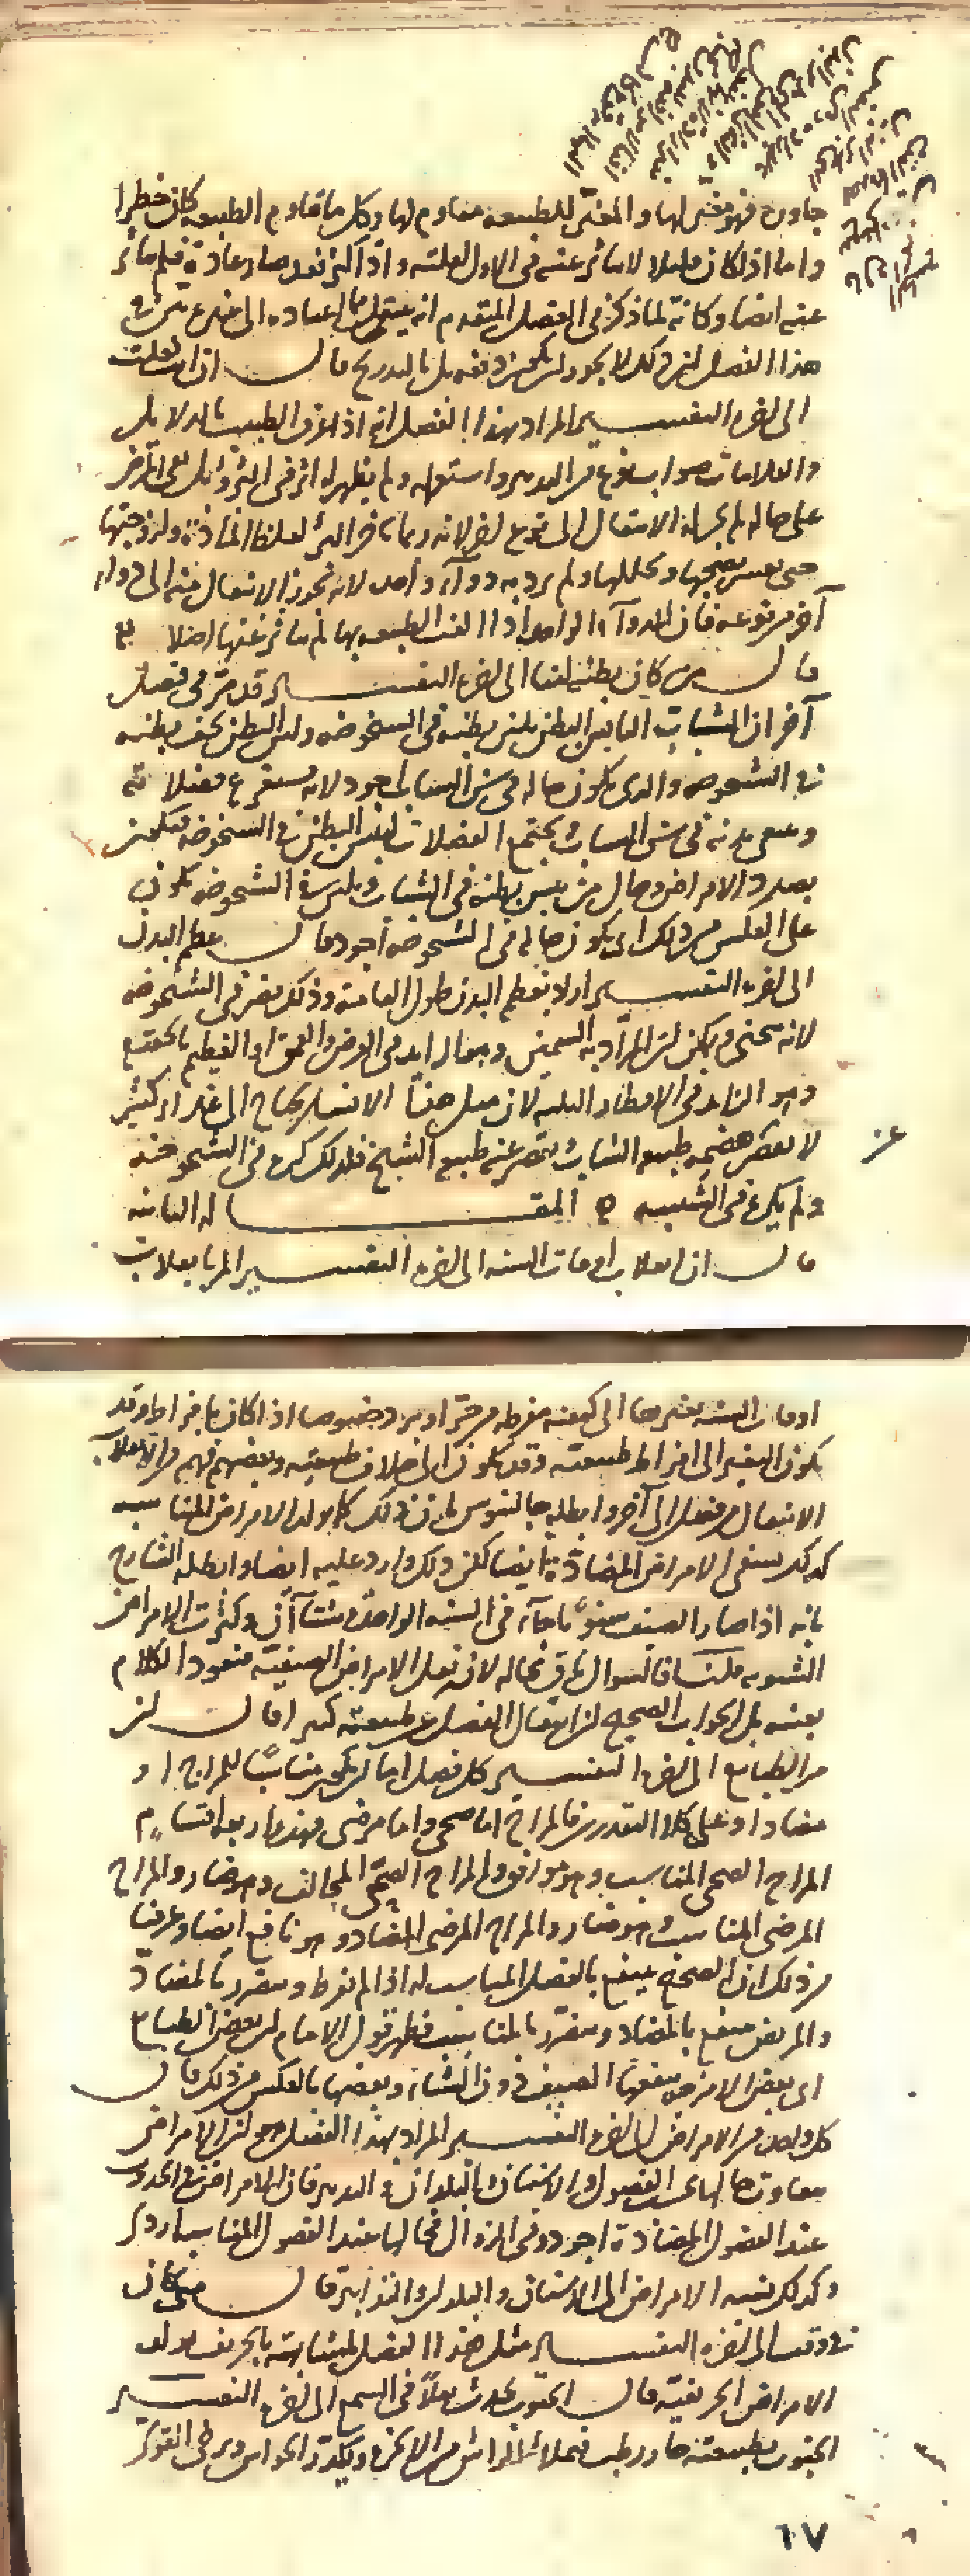 جاوزه فهو مغير لها والمغير للطبيعة مقاوم لها وكل ما قاوم الطبيعة كان خطرا
واما اذا كان قليلا لا تتأثر عنه في الاول لقلته واذا كثر بعد صار عادة فلم تتأثر
عنه ايضا وكأنه لما ذكر في الفصل المتقدم انه ينتقل ما اعتاده الى
هذا الفصل ان ذلك لا يجوز ان يكون دفعة بل بالتدريج قال ان انت فعلت
الى اخره التفسير المراد بهذا الفصل انه اذا عرف الطبيب بالدلايل
والعلامات صواب نوع من التدبير واستعمله ولم يظهر له اثر في البرء بل بقي المرض
على حاله لم يجز له الانتقال الى نوع اخر لانه ربما تأخر البرء لغلظ المادة ولزوجتها
حتى يعسر نضجها وتحللها ولم يرد به دواء واحد لانه يجوز الانتقال منه الى دواء
آخر من نوعه فان الدواء الواحد اذا الفت الطبيعة بها لم تتأثر عنها اصلا
قال من كان بطنه لينا الى اخره التفسير قد مر في فصل
آخر ان الشباب اليابس البطن يلين بطنه في الشيخوخة ولين البطن يجف بطنه
في الشيخوخة والذي يكون حاله في سن الشباب اجود لانه يستفرغ فضلاته
وينقى بدنه في سن الشباب ويجتمع الفضلات ليبس البطن في الشيخوخة فيكون
بصدد الامراض وحال من يبس بطنه في الشباب ويلين في الشيخوخة يكون
على العكس من ذلك اي يكون حاله في الشيخوخة اجود قال عظم البدن
الى اخره التفسير اراد بعظم البدن طول القامة وذلك يضر في الشيخوخة
لانه ينحني ويمكن ان المراد به السمين وهو الزايد في العرض والعمق او العظيم بالحقيقة
وهو الزايد في الاقطار الثلثة لان مثل هذا الانسان يحتاج الى غذاء كثير
لا يقصر هضمه طبيعة الشاب ويقصر عنه طبيعة الشيخ فلذلك كره في الشيخوخة
ولم يكره في الشبيبة المقالة الثالثة
قال ان انقلاب اوقات السنة الى اخره التفسير المراد بانقلاب
اوقات السنة تغيرها الى كيفية مفرطة من حر او برد وخصوصا اذا كان بافراط وقد
يكون التغير الى افراط طبيعته وقد يكون الى خلاف طبيعته وبعضهم فهم من الانقلاب
الانتقال من فصل الى آخر وابطله جالينوس بان ذلك كما يولد الامراض المناسبة
كذلك يشفي الامراض المضادة ايضا لكن ذلك وارد عليه ايضا وابطله الشارح
بانه اذا صار الصيف شتويا جاء في السنة الواحدة شتاآن وكثرت الامراض
الشتوية قلنا فالسؤال باق بحاله لانه تقل الامراض الصيفية فيعود الكلام
بعينه بل الجواب الصحيح ان انتقال الفصل عن طبيعته كثيرا قال ان
من الطبايع الى اخره التفسير كل فصل اما ان يكون مناسبا للمزاج او
مضادا وعلى كلا التقديرين فالمزاج اما صحي واما مرضي فهذه اربعة اقسام
المزاج الصحي المناسب وهو موافق والمزاج الصحي المخالف وهو ضار والمزاج
المرضي المناسب وهو ضار والمزاج المرضي المضاد وهو نافع ايضا وعرفنا
من ذلك ان الصحيح ينتفع بالفصل المناسب له اذا لم يفرط ويتضرر بالمضاد
والمريض ينتفع بالمضاد ويتضرر بالمناسب فظهر قول الامام ان بعض الطبايع
اي بعض الامزجة ينفعها الصيف دون الشتاء وبعضها بالعكس من ذلك قال
كل واحد من الامراض الى اخره التفسير المراد بهذا الفصل هو ان الامراض
يتفاوت حالها بحسب الفصول والاسنان والبلدان والتدبير فان الامراض في الحدوث
عند الفصول المضادة اجود وفي الزوال فحالها عند الفصول المناسبة اردى
وكذلك نسبة الامراض الى الاسنان والبلدان والتدابير قال متى كان
في وقت الى اخره التفسير مثل هذا الفصل لمشابهته بالخريف يولد
الامراض الخريفية قال الجنوب يحدث ثقلا في السمع الى اخره التفسير
الجنوب بطبيعته حار رطب فيملأ الرأس من الابخرة ويكدر الحواس ويرخي القوى
١٧